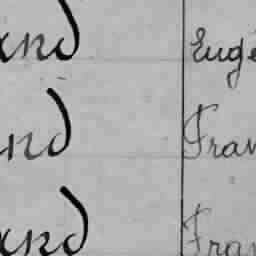 and Eugé
nd Fran
and Fran